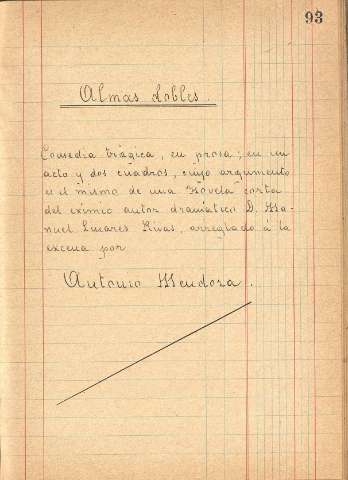 93
Almas dobles.
Comedia trágica, en prosa, en un
acto y dos cuadros, cuyo argumento
es el mismo de una Novela corta
del exímio autor dramático D. Ma-
nuel Linares Rivas, arreglado á la
excena por
Antonio Mendoza.